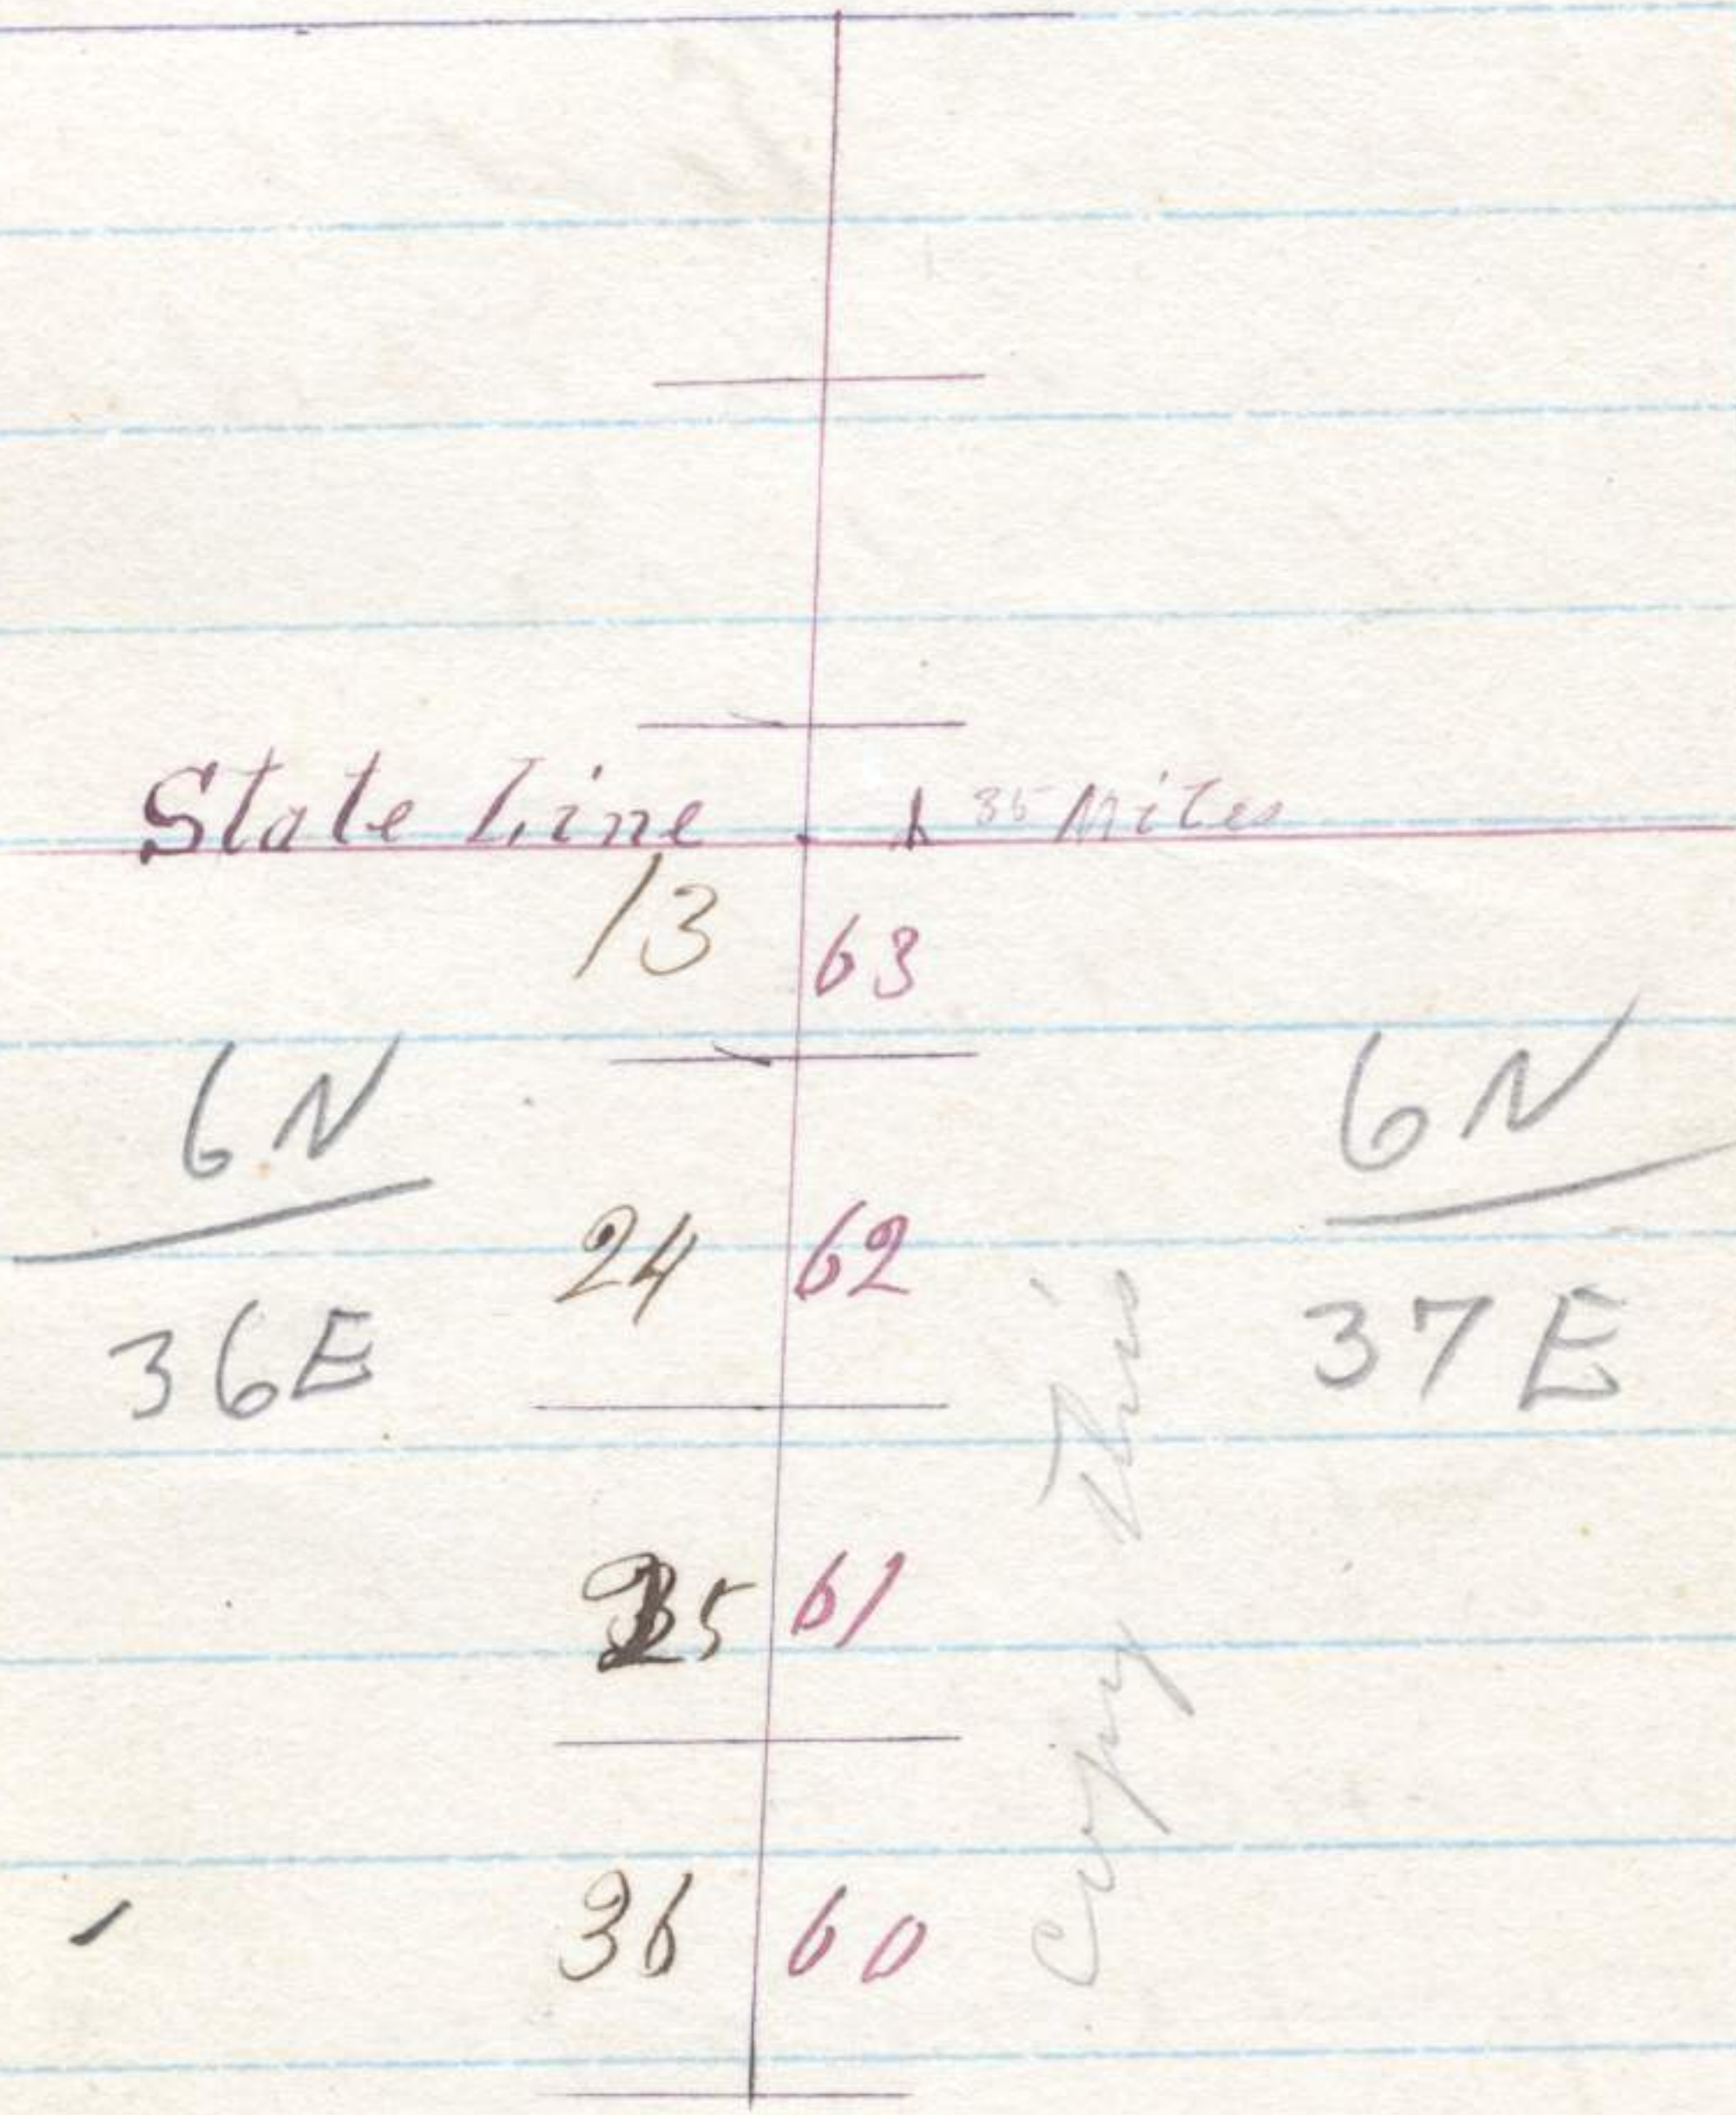 State Line 35 Miles
13 63
6N 6N
24 62
36E 37E
25 61
36 60
Copy This